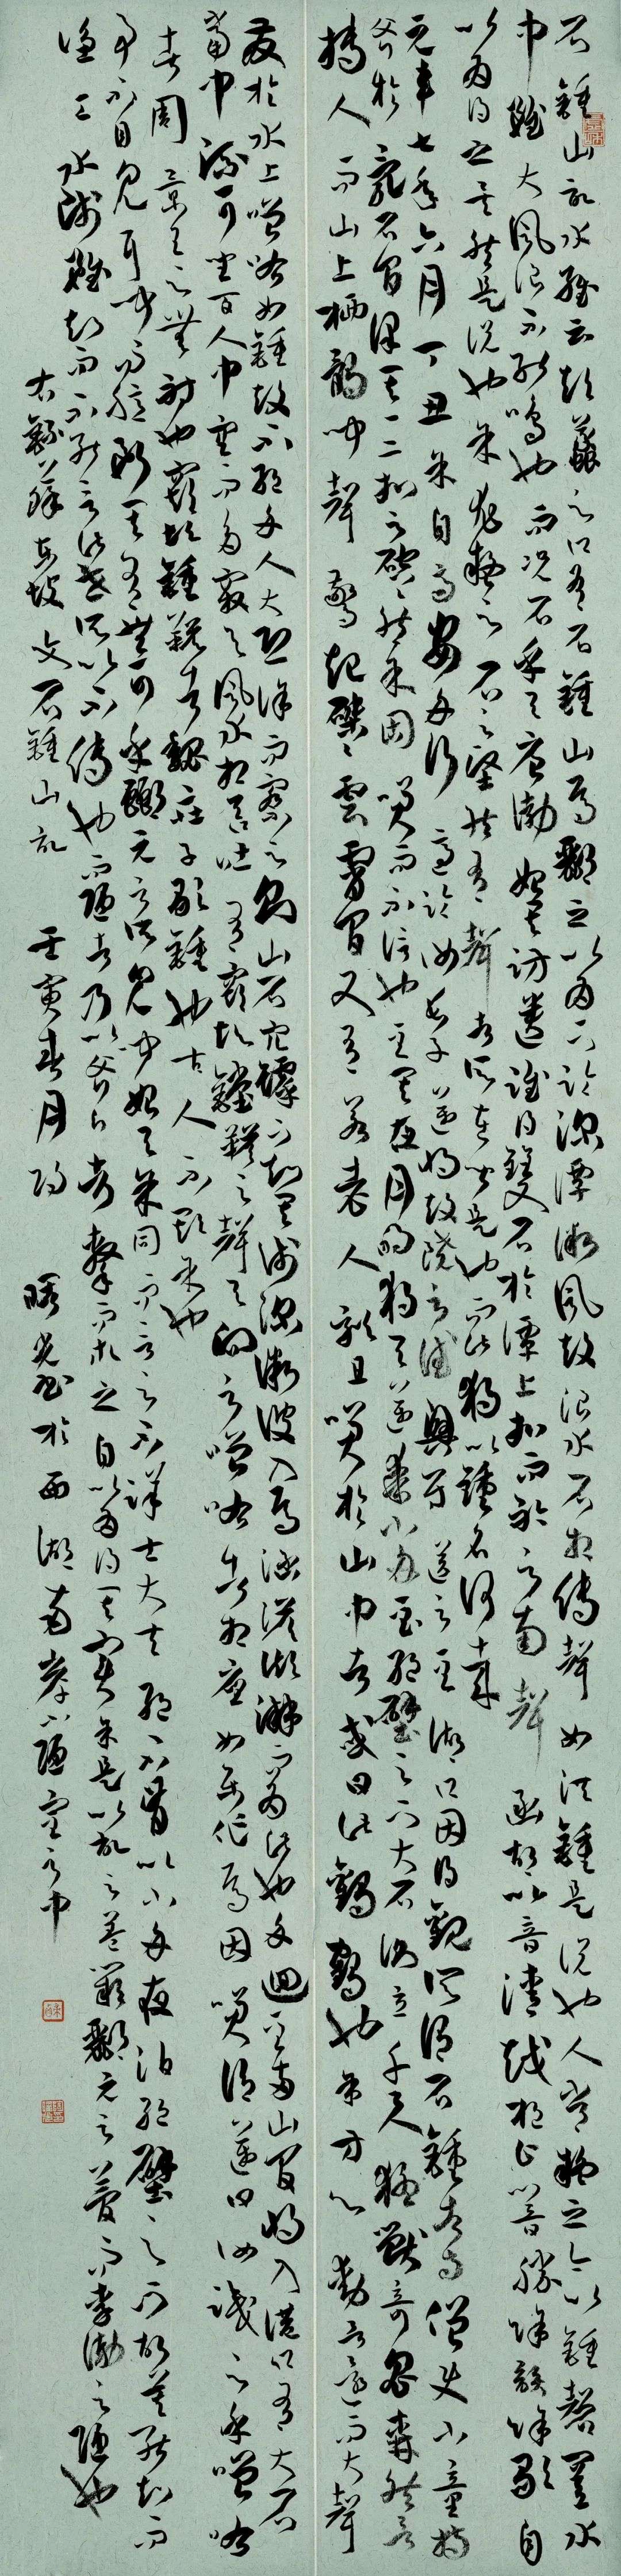 石鐘山記水經云彭蠡之口有石鐘山焉酈元以為下臨深潭微風鼓浪水石相搏聲如洪鐘是說也人常疑之今以鐘磬置水
中雖大風浪不能鳴也而況石乎至唐渤始訪其遺蹤得雙石於潭上扣而聆之南聲函胡北音清越枹止響騰餘韻徐歇自
以為得之矣然是說也余尤疑之石之鏗然有聲者所在皆是也而此獨以鐘名何哉
元豐七年六月丁丑余自齊安舟行適臨汝長子邁將赴饒之德興尉送之至湖口因得觀所謂石鐘者寺僧使小童持
斧於亂石間擇其一二扣之硿硿然余固笑而不信也至其夜月明獨與邁乘小舟至絕壁之下大石側立千尺猛獸奇鬼森然欲
搏人而山上栖鶻聞聲驚起磔磔雲霄間又有若老人欬且笑於山中者或曰此鸛鶴也余方心動欲還而大聲
發於水上噌吰如鐘鼓不絕舟人大恐徐而察之則山石穴罅不知其淺深微波入焉涵淡澎湃而為此也舟迴至兩山間將入港口有大石
當中流可坐百人中空而多竅與風水相吞吐有窾坎鏜鞳之聲與向之噌吰者相應如樂作焉因笑謂邁曰汝識之乎噌吰
者周景王之無射也窾坎鏜鞳者魏莊子歌鐘也古人不欺余也
事不目見耳聞而臆斷其有無可乎酈元之所見聞殆與余同而言之不詳士大夫終不肯以小舟夜泊絕壁之下故莫能知而
漁工水師雖知而不能言此世所以不傳也而陋者乃以斧斤考擊而求之自以為得其實余是以記之蓋嘆酈元之簡而李渤之陋也
右錄蘇東坡文石鐘山記 壬寅春月 曙光書於西湖南岸小隱室之中